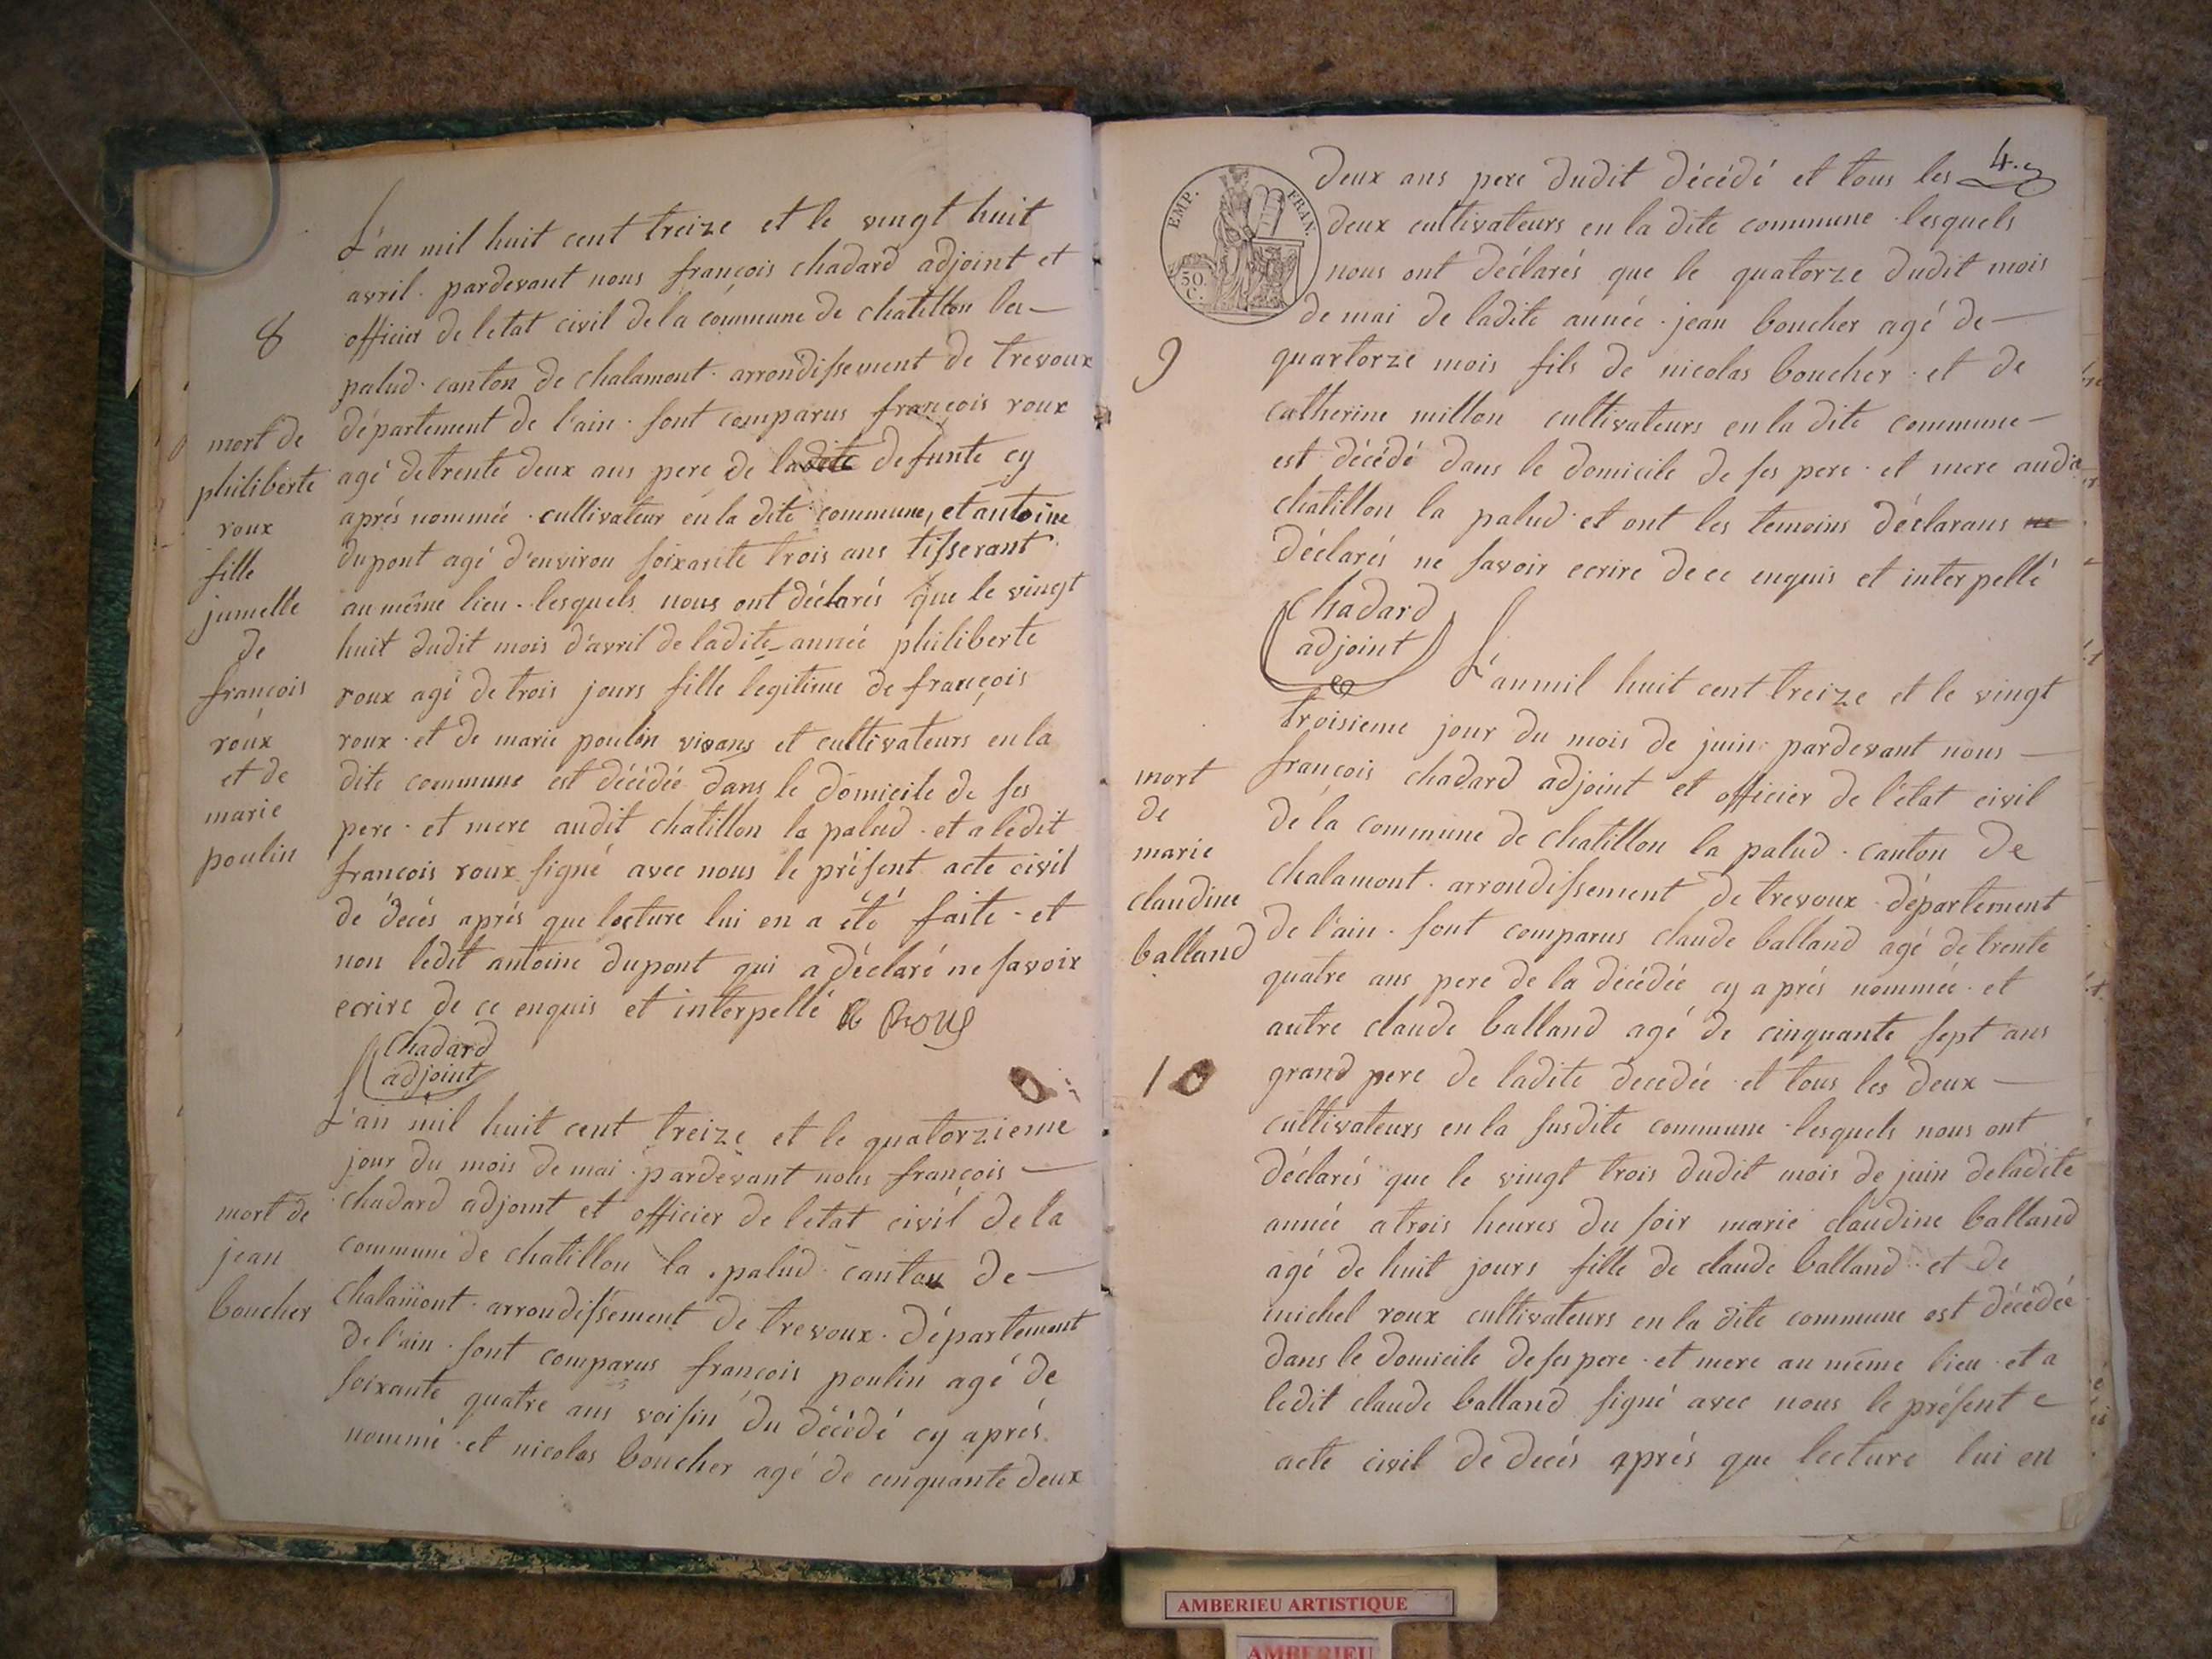 8
mort de
philiberte
roux
fille
jumelle
de
françois
roux
et de
marie
poulin
L'an mil huit cent treize et le vingt huit
avril. pardevant nous françois chadard adjoint et
officier de letat civil de la commune de chatillon la
palud. canton de chalamont. arrondissement de trevoux
département de l'ain. sont comparus françois roux
agé de trente deux ans pere de ladite defunte cy
aprés nommée. cultivateur en la dite commune, et antoine
dupont agé d'environ soixante trois ans tisserant
au même lieu. lesquels nous ont déclarés que le vingt
huit dudit mois d'avril de ladite année philiberte
roux agé de trois jours fille legitime de françois
roux. et de marie poulin vivans et cultivateurs en la
dite commune est décédée dans le domicile de ses
pere. et mere audit chatillon la palud. et a ledit
francois roux signé avec nous le présent acte civil
de decés aprés que lecture lui en a été faite. et
non ledit antoine dupont qui a déclaré ne savoir
ecrire de ce enquis et interpellé
Chadard
adjoint
mort de
jean
boucher
L'an mil huit cent treize et le quatorzieme
jour du mois de mai. pardevant nous françois
chadard adjoint et officier de letat civil de la
commune de chatillon la palud canton de
chalamont. arrondissement de trevoux. département
de l'ain. sont comparus françois poulin agé de
soixante quatre ans voisin du décédé cy aprés
nommé. et nicolas boucher agé de cinquante deux
4.
EMP. FRAN.
50. C.
deux ans pere dudit décédé et tous les
deux cultivateurs en la dite commune. lesquels
nous ont déclarés que le quatorze dudit mois
de mai de ladite année. jean boucher agé de
9
quartorze mois fils de nicolas boucher. et de
catherine millon cultivateurs en la dite commune
est décédé dans le domicile de ses pere. et mere audit
chatillon la palud. et ont les temoins déclarans ne
déclarés ne savoir ecrire de ce enquis et interpellé
Chadard
adjoint
mort
de
marie
claudine
balland
10
L'an mil huit cent treize et le vingt
troisieme jour du mois de juin. pardevant nous
françois chadard adjoint et officier de l'état civil
de la commune de chatillon la palud. canton de
chalamont. arrondissement de trevoux. département
de l'ain. sont comparus claude balland agé de trente
quatre ans pere de la décédée cy aprés nommée. et
autre claude balland agé de cinquante sept ans
grand pere de ladite decedée. et tous les deux
cultivateurs en la susdite commune. lesquels nous ont
déclarés que le vingt trois dudit mois de juin de ladite
année a trois heures du soir marie claudine balland
agé de huit jours fille de claude balland. et de
michel roux cultivateurs en la dite commune est décédée
dans le domicile de ses pere. et mere au même lieu. et a
ledit claude balland signé avec nous le présent
acte civil de decés aprés que lecture lui en
AMBERIEU ARTISTIQUE
AMBERIEU